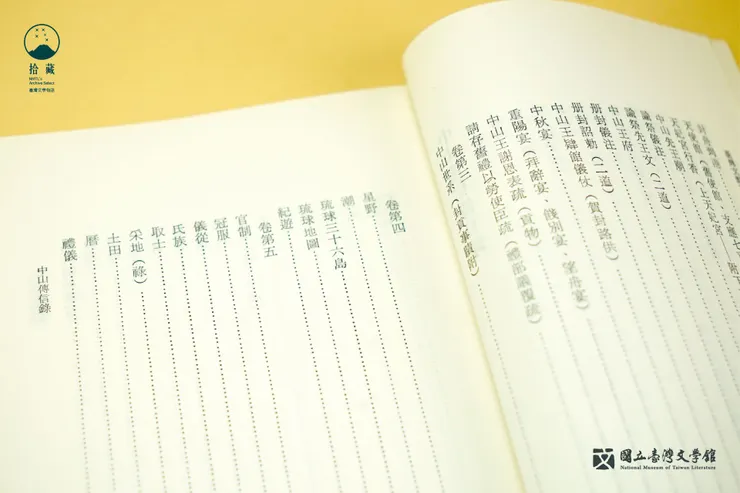 拾藏
NMTL's
Archive Select
臺灣文學物語
中山先王廟
諭祭儀注
諭祭先王文（二道）
中山王府
册封儀注
册封詔勅（二道）
中山王肄館儀仗（賀封路供）
中秋宴
重陽宴（拜辭宴、餞別宴、望舟宴）
中山王謝恩表疏（貢物）
請存舊禮以勞使臣疏（禮部議覆疏）
卷第三
中山世系（封貢事蹟附）
卷第四
星野
潮
琉球三十六島
琉球地圖
紀遊
卷第五
官制
冠服
儀從
氏族
取士
采地（祿）
土田
曆
禮儀
中山傳信錄
國立臺灣文學館
National Museum of Taiwan Literature